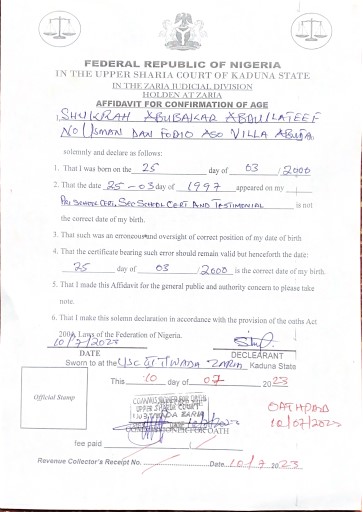 FEDERAL REPUBLIC OF NIGERIA
IN THE UPPER SHARIA COURT OF KADUNA STATE
IN THE ZARIA JUDICIAL DIVISION
HOLDEN AT ZARIA
AFFIDAVIT FOR CONFIRMATION OF AGE
I, SHUKRAH ABUBAKAR ABDULLATEEF
NO 1 USMAN DAN FODIO ASO VILLA ABUJA
solemnly and declare as follows:
1. That I was born on the 25 day of 03 / 2000
2. That the date 25-03 day of 1997 appeared on my
PRI SCHOOL CERT, SEC SCHOOL CERT AND TESTIMONIAL is not
the correct date of my birth.
3. That such was an erroneous and oversight of correct position of my date of birth
4. That the certificate bearing such error should remain valid but henceforth the date:
25 day of 03 / 2000 is the correct date of my birth.
5. That I made this Affidavit for the general public and authority concern to please take
note.
6. That I make this solemn declaration in accordance with the provision of the oaths Act
Laws of the Federation of Nigeria.
10/7/2023
DATE
DECLEARANT
Sworn to at the USC II T/WADA ZARIA Kaduna State
This 10 day of 07 2023
Official Stamp
COMMISSIONER FOR OATH
UPPER SHARIA COURT
ZARIA
OATH PAID
10/07/2023
COMMISSIONER FOR OATH
fee paid
Revenue Collector's Receipt No. Date 10/7 2023